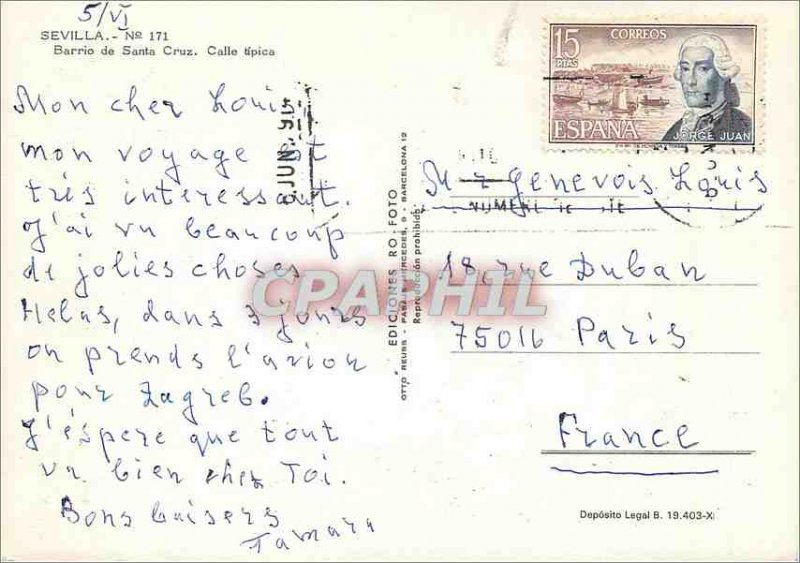 5/VI
SEVILLA. - Nº 171
Barrio de Santa Cruz. Calle típica
Mon cher Louis,
mon voyage est
très interessant.
J'ai vu beaucoup
de jolies choses
Helas, dans 3 jours
on prends l'avion
pour Zagreb.
J'éspere que tout
va bien chez Toi.
Bons baisers
Tamara
EDICIONES RO-FOTO
OTTO REUSS - PASAJE MERCEDES, 9 - BARCELONA 12
Reproducción prohibida
15
PTAS
CORREOS
ESPAÑA
JORGE JUAN
JUN
Mr Genevois Louis
18, rue Duban
75016 Paris
France
Depósito Legal B. 19.403-X
CPAPHIL